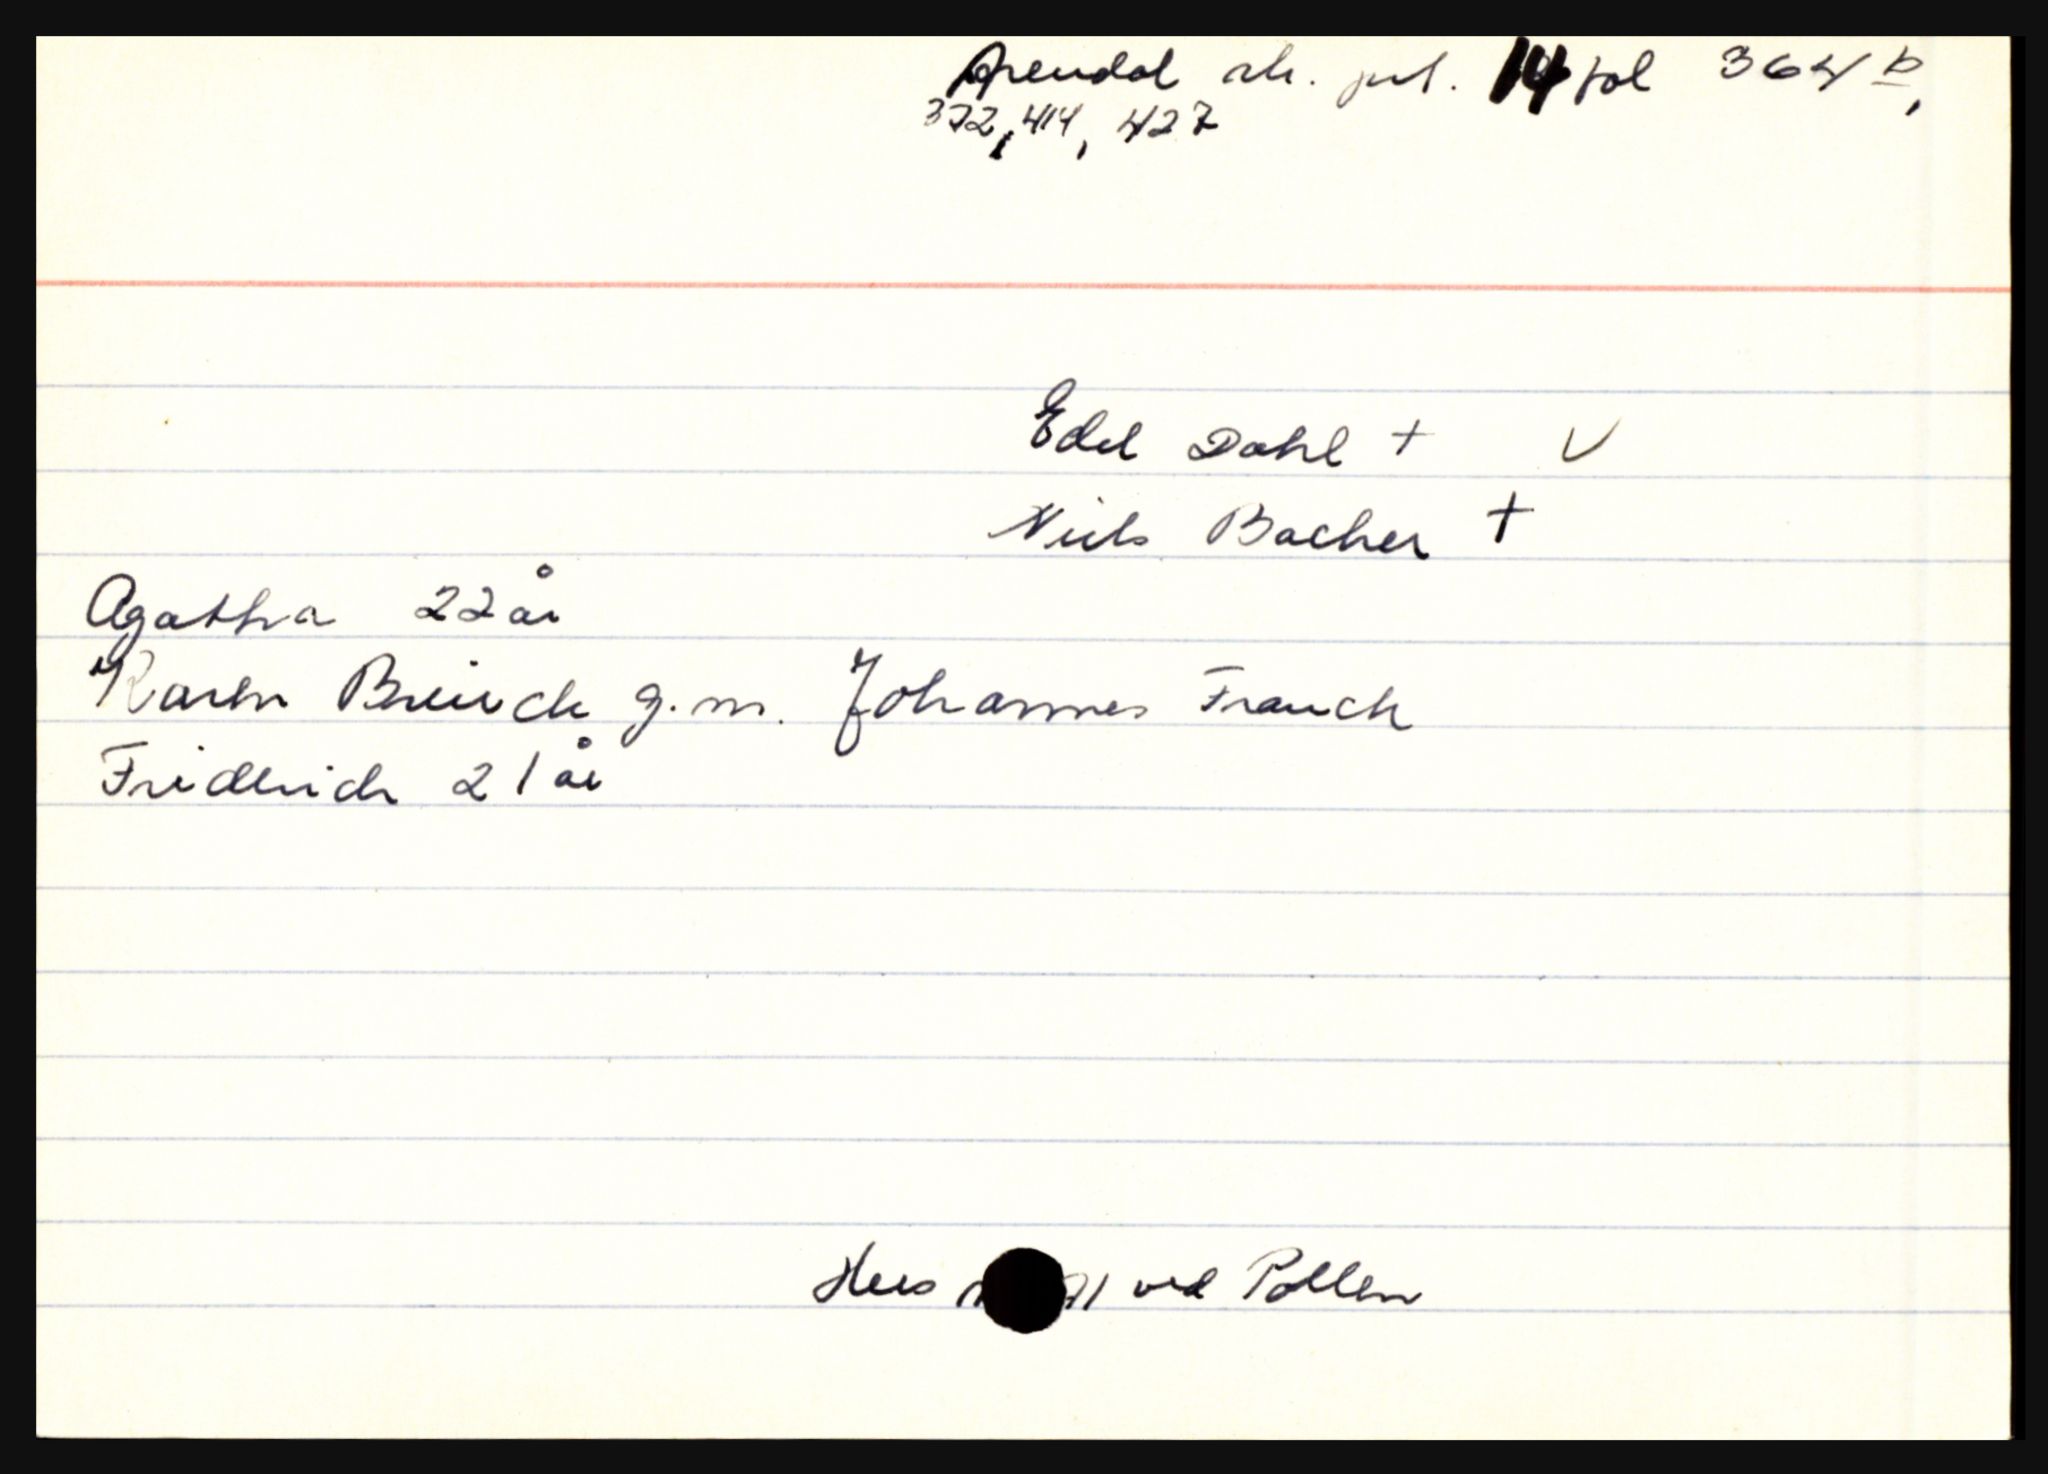 Arendal sk. prt. 14 fol 364 b,
372, 414, 427
Edel Dahl + V
Niels Bacher +
Agatha 22 år
Karen Breück g.m. Johannes Franck
Fridlrich 21 år
Hus 91 ved Pollen